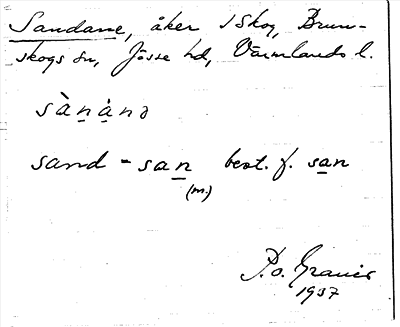 Sandane, åker i Skog, Brun-
skogs sn, Jösse hd, Värmlands l.
sànànə
sand - san best. f. san
(m.)
P. o. Graner
1937